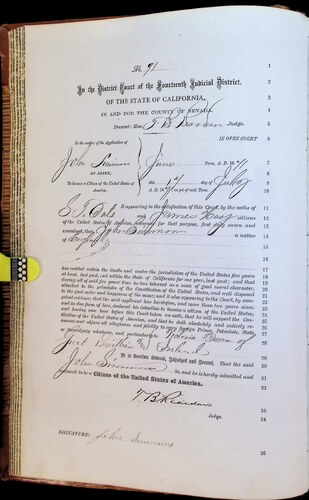 No. 91
In the District Court of the Fourteenth Judicial District,
OF THE STATE OF CALIFORNIA,
IN AND FOR THE COUNTY OF NEVADA.
Present: Hon. T B Reardan Judge.
IN OPEN COURT
In the matter of the Application of
John Simmons June Term, A. D. 187
AN ALIEN,
To become a Citizen of the United States of America. this 17 day of July
being of said Term.
It appearing to the satisfaction of this Court, by the oaths of
and James citizens
of the United States of America, witnesses for that purpose, first duly sworn and
examined, that John Simmons a native
of England
has resided within the limits and under the jurisdiction of the United States five years
at least last past, and within the State of California for one year, last past; and that
during all of said five years' time he has behaved as a man of good moral character,
attached to the principles of the Constitution of the United States, and well disposed
to the good order and happiness of the same; and it also appearing to the Court, by competent
proof, that the said applicant has heretofore, and more than two years since,
and in due form of law, declared his intention to become a citizen of the United States,
and having now here before this Court, taken an oath, that he will support the Constitution
of the United States of America, and that he doth absolutely and entirely renounce
and abjure all allegiance and fidelity to every foreign Prince, Potentate, State,
or Sovereignty whatever, and particularly to Victoria Queen of
Great Brittian & Ireland
It is therefore Ordered, Adjudged and Decreed, That the said
John Simmons be, and he is hereby admitted and
declared to be a Citizen of the United States of America.
T. B. Reardan
Judge.
SIGNATURE: John Simmons
1
2
3
4
5
6
7
8
9
10
11
12
13
14
15
16
17
18
19
20
21
22
23
24
25
26
27
28
29
30
31
32
33
34
35